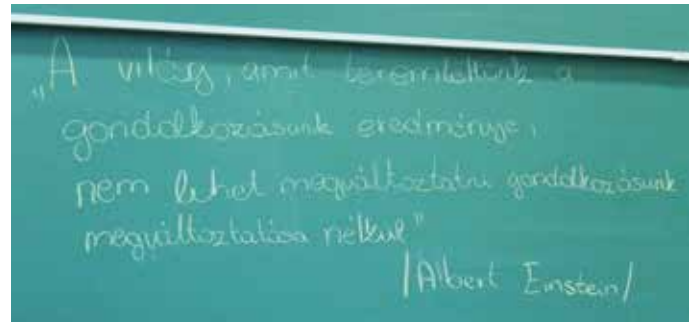 „A világ, amit teremtettünk a
gondolkozásunk eredménye,
nem lehet megváltoztatni gondolkozásunk
megváltoztatása nélkül”
/Albert Einstein/